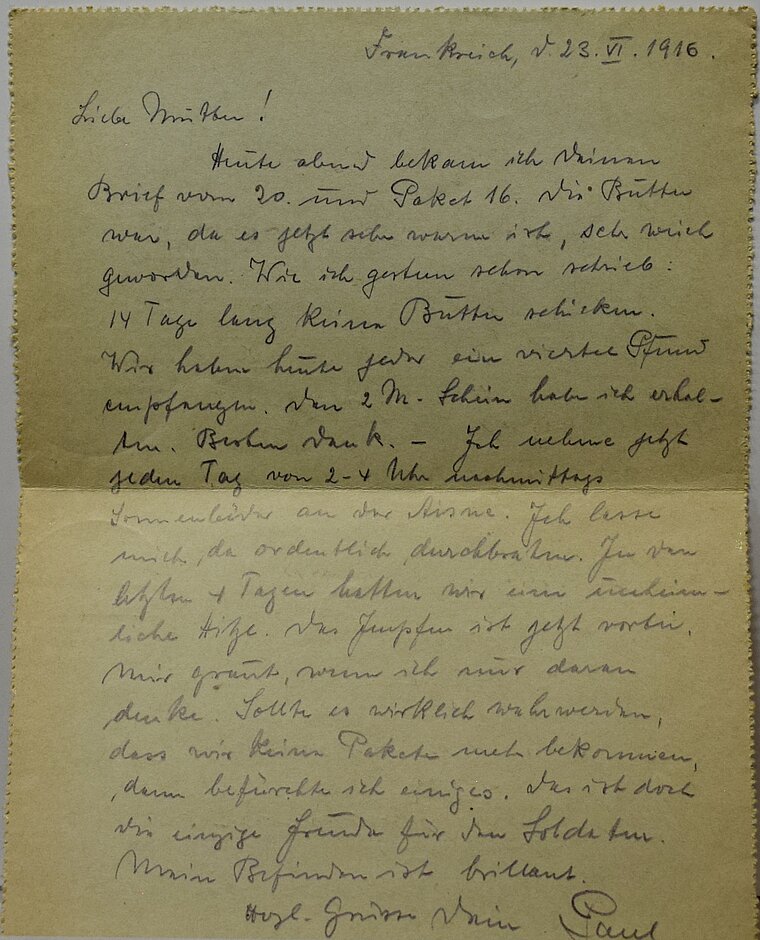 Frankreich, d. 23. VI. 1916.
Liebe Mutter!
Heute abend bekam ich Deinen
Brief vom 20. und Paket 16. Die Butter
war, da es jetzt sehr warm ist, sehr weich
geworden. Wie ich gestern schon schrieb:
14 Tage lang keine Butter schicken.
Wir haben heute jeder ein viertel Pfund
empfangen. Den 2 M.-Schein habe ich erhal-
ten. Besten Dank. – Ich nehme jetzt
jeden Tag von 2-4 Uhr nachmittags
Sonnenbäder an der Aisne. Ich lasse
mich da ordentlich durchbraten. In den
letzten 4 Tagen hatten wir eine unheim-
liche Hitze. Das Impfen ist jetzt vorbei.
Mir graut, wenn ich nur daran
denke. Sollte es wirklich wahr werden,
dass wir keine Pakete mehr bekommen,
dann befürchte ich einiges. Das ist doch
die einzige Freude für den Soldaten.
Mein Befinden ist brillant.
Herzl. Grüsse Dein Paul